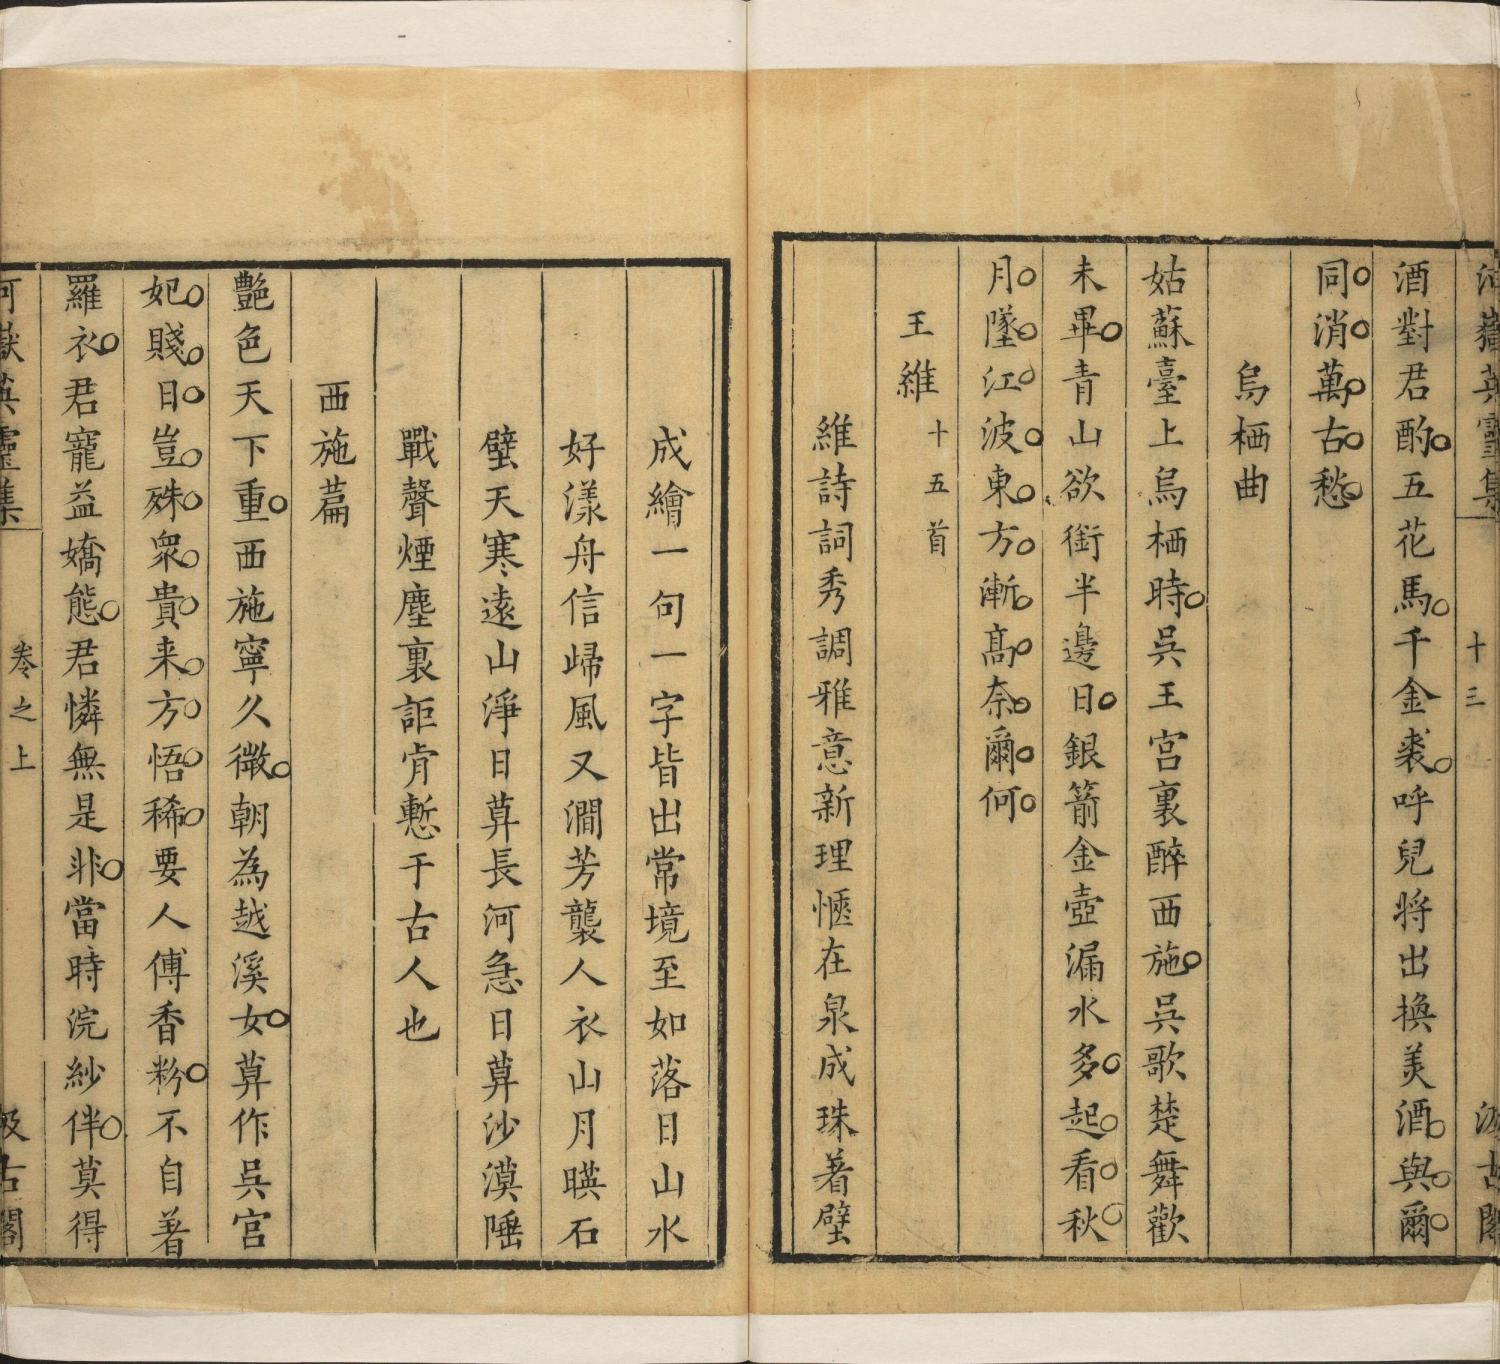 河嶽英靈集 十三 汲古閣
酒對君酌五花馬千金裘呼兒將出換美酒與爾
同消萬古愁
烏栖曲
姑蘇臺上烏栖時吳王宮裏醉西施吳歌楚舞歡
未畢青山欲銜半邊日銀箭金壺漏水多起看秋
月墜江波東方漸高奈爾何
王維 十五首
維詩詞秀調雅意新理愜在泉成珠著壁
成繪一句一字皆出常境至如落日山水
好漾舟信歸風又澗芳襲人衣山月暎石
壁天寒遠山淨日暮長河急日暮沙漠陲
戰聲煙塵裏詎肯慙于古人也
西施篇
艷色天下重西施寧久微朝為越溪女暮作吳宮
妃賤日豈殊衆貴来方悟稀要人傅香粉不自著
羅衣君寵益嬌態君憐無是非當時浣紗伴莫得
河嶽英靈集 卷之上 汲古閣